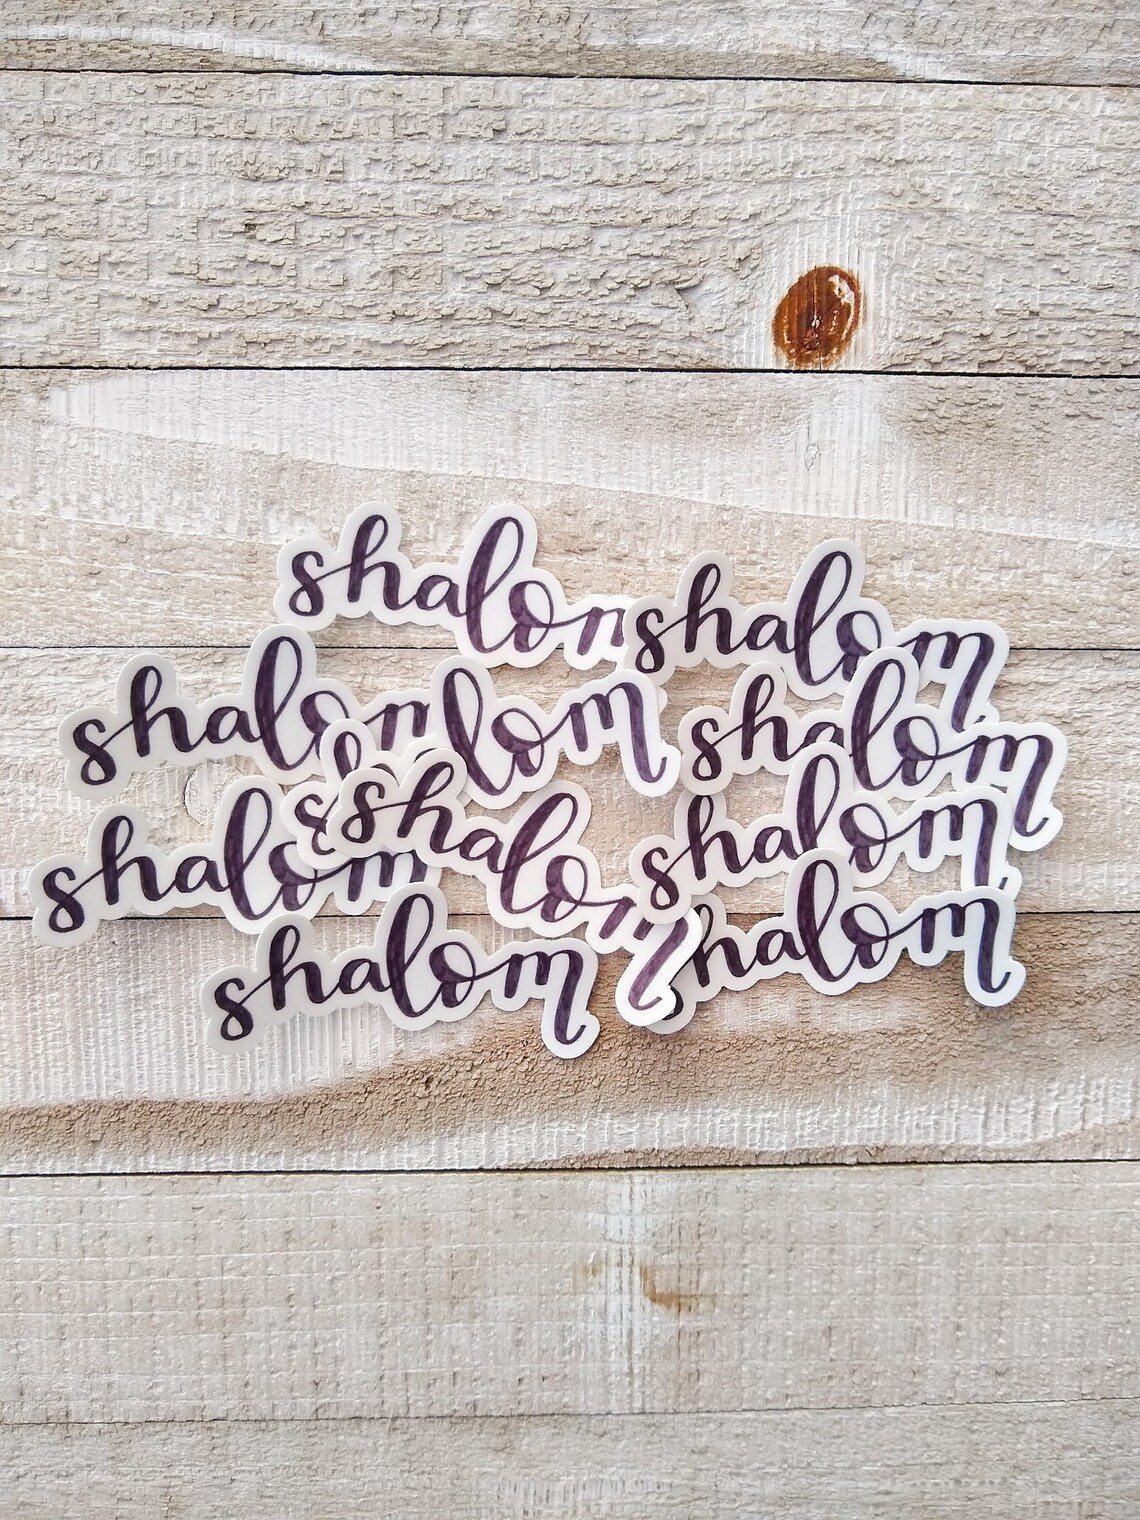 shalom
shalom
shalom
shalom
shalom
shalom
shalom
shalom
shalom
shalom